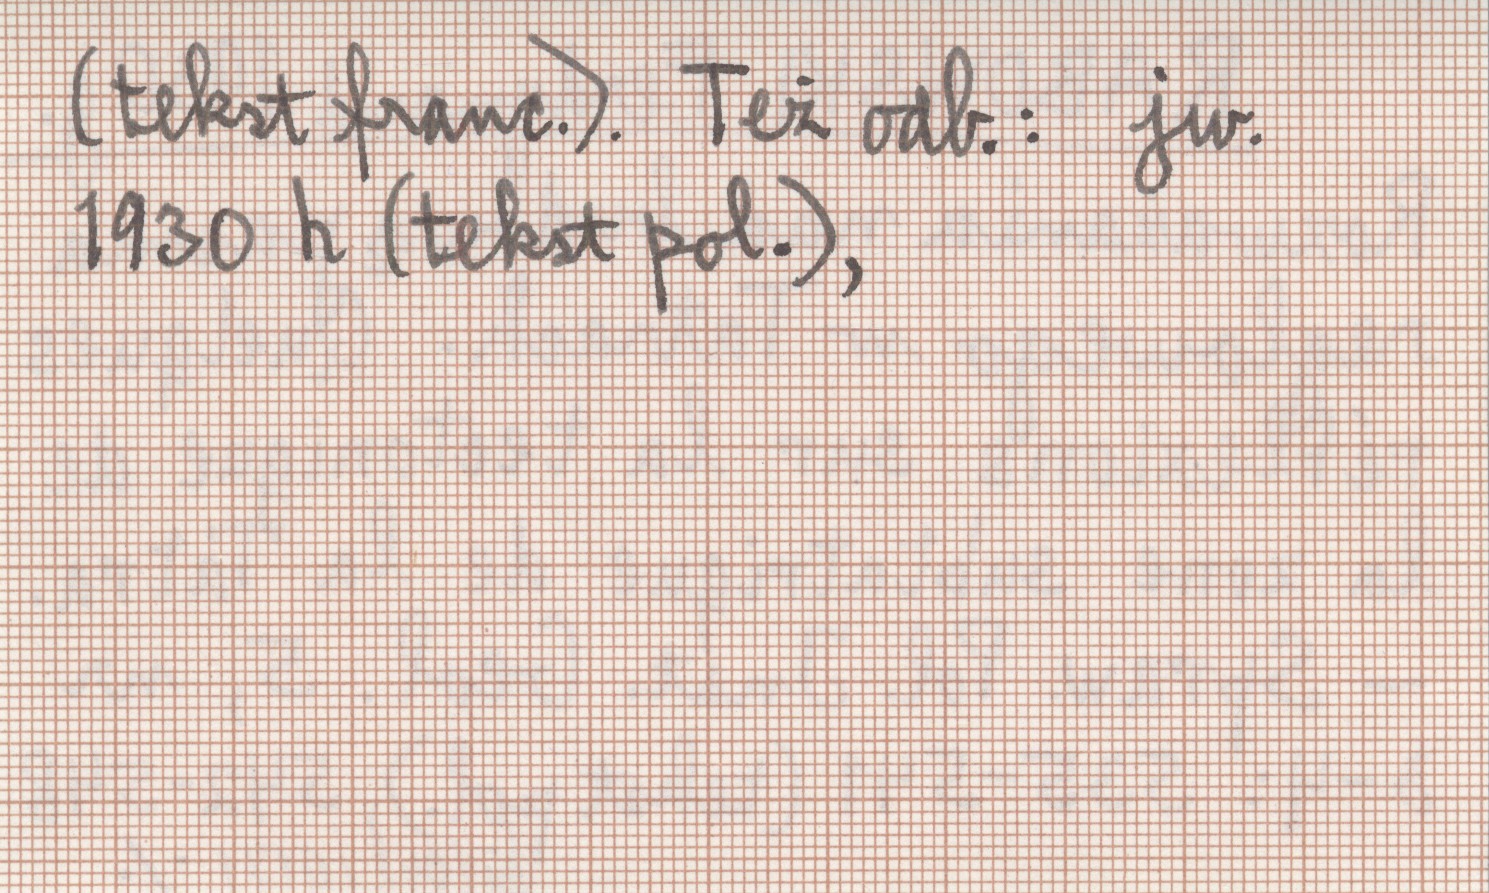 (tekst franc.). Też odb.: jw.
1930 h (tekst pol.),